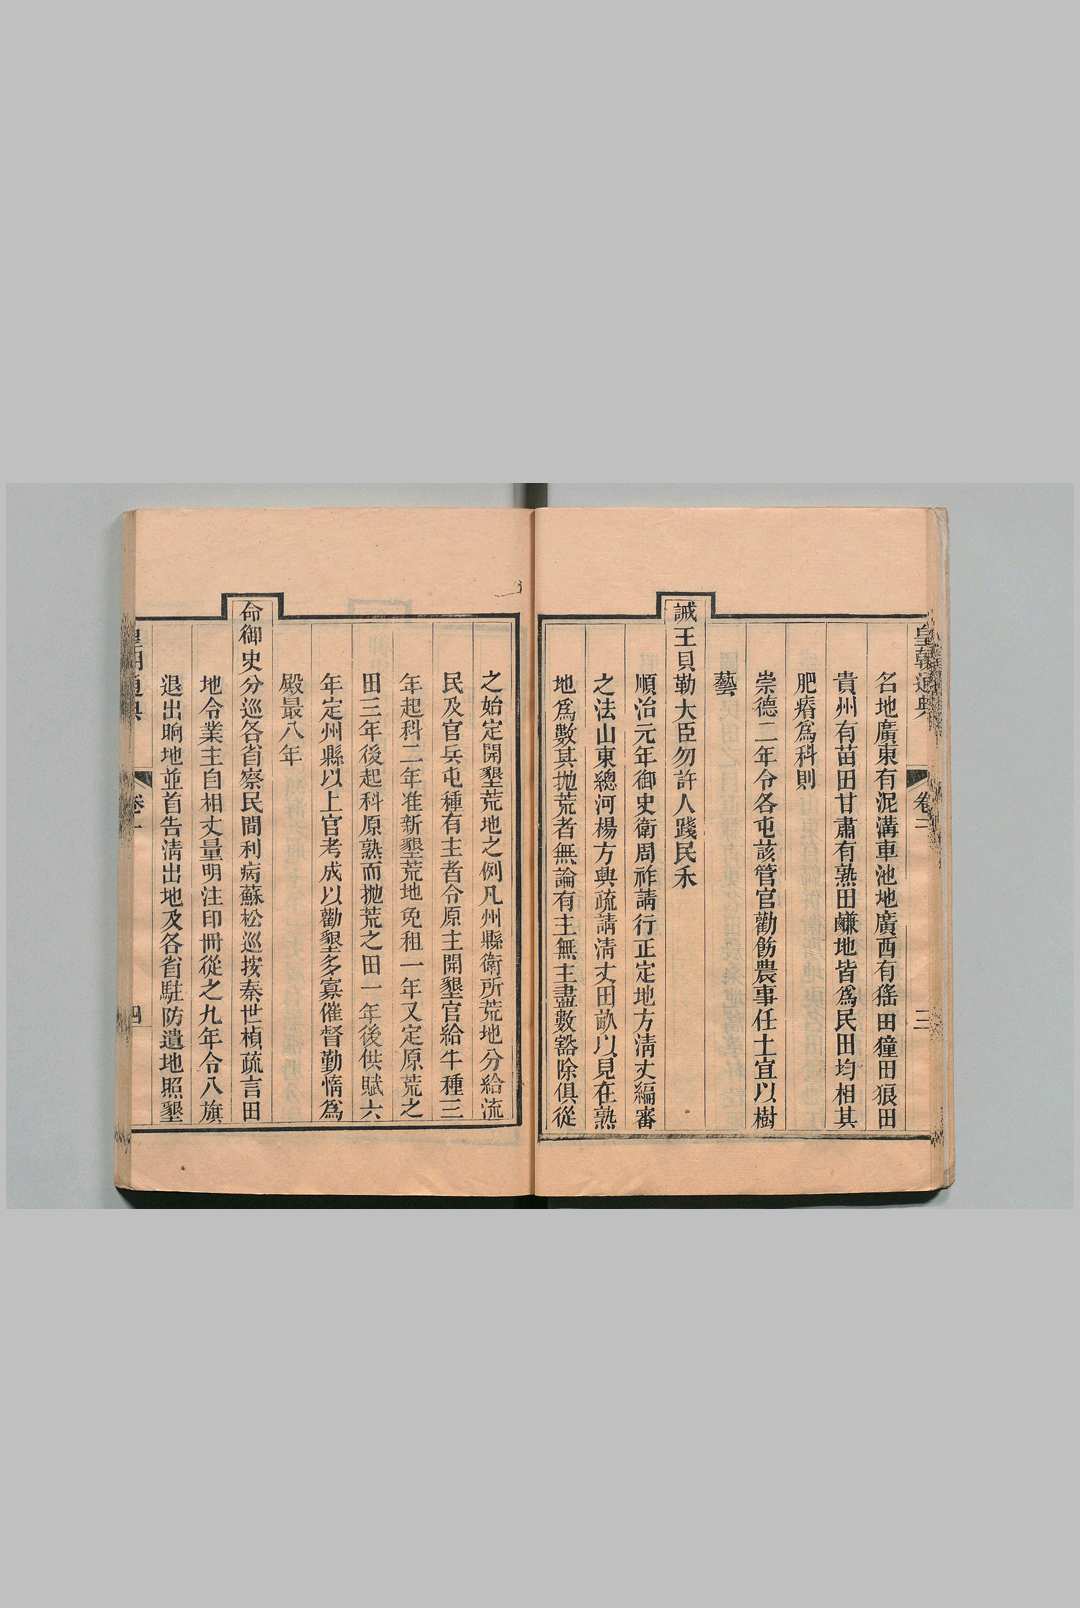 皇朝通典
卷二
三
名地廣東有泥溝車池地廣西有猺田獞田狼田
貴州有苗田甘肅有熟田鹻地皆爲民田均相其
肥瘠爲科則
崇德二年令各屯該管官勸飭農事任土宜以樹
藝
誡王貝勒大臣勿許人踐民禾
順治元年御史衛周祚請行正定地方淸丈編審
之法山東總河楊方興疏請淸丈田畝以見在熟
地爲數其拋荒者無論有主無主盡數豁除俱從
之始定開墾荒地之例凡州縣衛所荒地分給流
民及官兵屯種有主者令原主開墾官給牛種三
年起科二年准新墾荒地免租一年又定原荒之
田三年後起科原熟而拋荒之田一年後供賦六
年定州縣以上官考成以勸墾多寡催督勤惰爲
殿最八年
命御史分巡各省察民間利病蘇松巡按秦世楨疏言田
地令業主自相丈量明注印冊從之九年令八旗
退出晌地並首告淸出地及各省駐防遺地照墾
皇朝通典
四